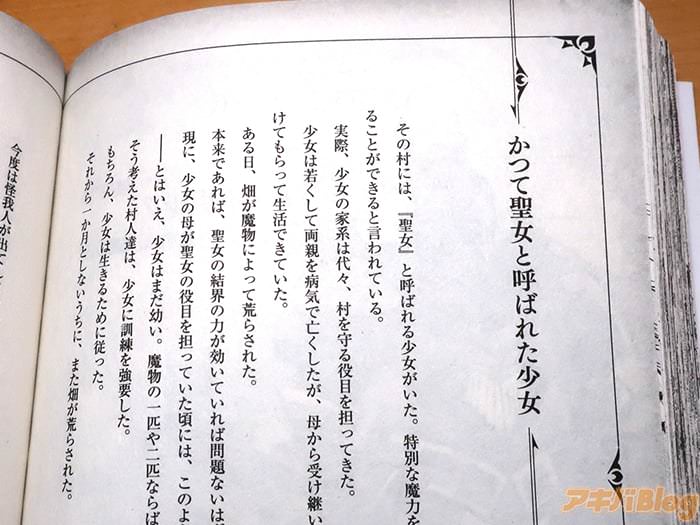 かつて聖女と呼ばれた少女
その村には、『聖女』と呼ばれる少女がいた。特別な魔力を
ることができると言われている。
実際、少女の家系は代々、村を守る役目を担ってきた。
少女は若くして両親を病気で亡くしたが、母から受け継い
けてもらって生活できていた。
ある日、畑が魔物によって荒らされた。
本来であれば、聖女の結界の力が効いていれば問題ないは
現に、少女の母が聖女の役目を担っていた頃には、このよ
――とはいえ、少女はまだ幼い。魔物の一匹や二匹ならば
そう考えた村人達は、少女に訓練を強要した。
もちろん、少女は生きるために従った。
それから一か月としないうちに、また畑が荒らされた。
今度は怪我人が出て
アキバBlog